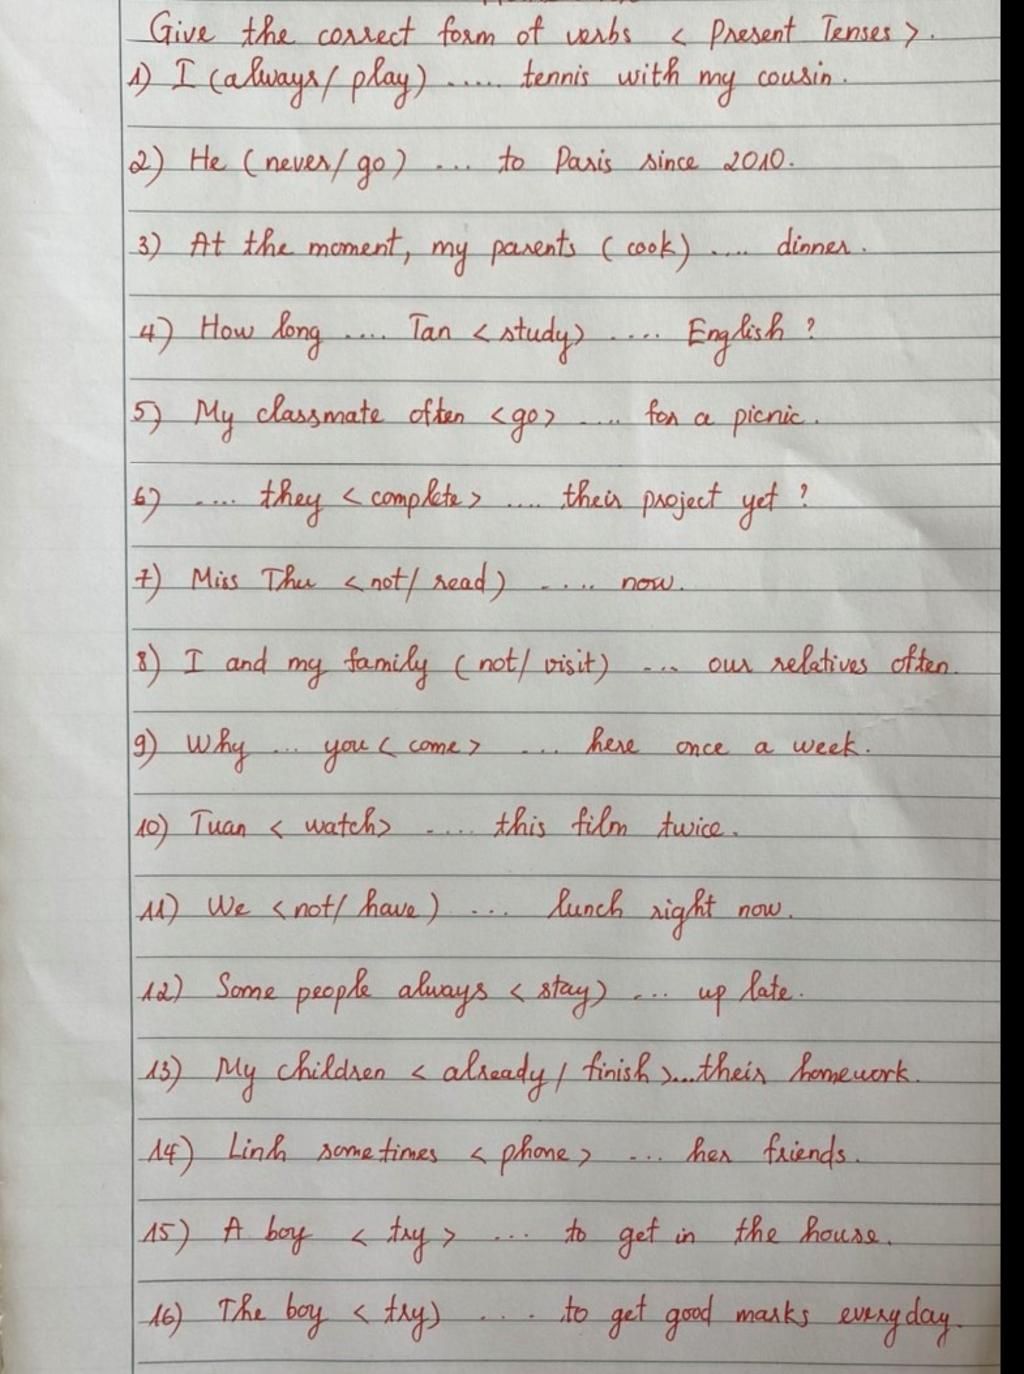 Give the correct form of verbs < Present Tenses >.
1) I (always/ play) ..... tennis with my cousin.
2) He (never/ go) ... to Paris since 2010.
3) At the moment, my parents ( cook) .... dinner.
4) How long .... Tan < study> ..... English ?
5) My classmate often <go> .... for a picnic.
6) .... they < complete> .... their project yet ?
7) Miss Thu < not/ read) ..... now.
8) I and my family ( not/ visit) ... our relatives often.
9) Why ... you < come> ... here once a week.
10) Tuan < watch> ..... this film twice.
11) We < not/ have) ... lunch right now.
12) Some people always < stay) ... up late.
13) My children < already / finish >...their homework.
14) Linh sometimes < phone> ... her friends.
15) A boy < try > ... to get in the house.
16) The boy < try) .... to get good marks everyday.